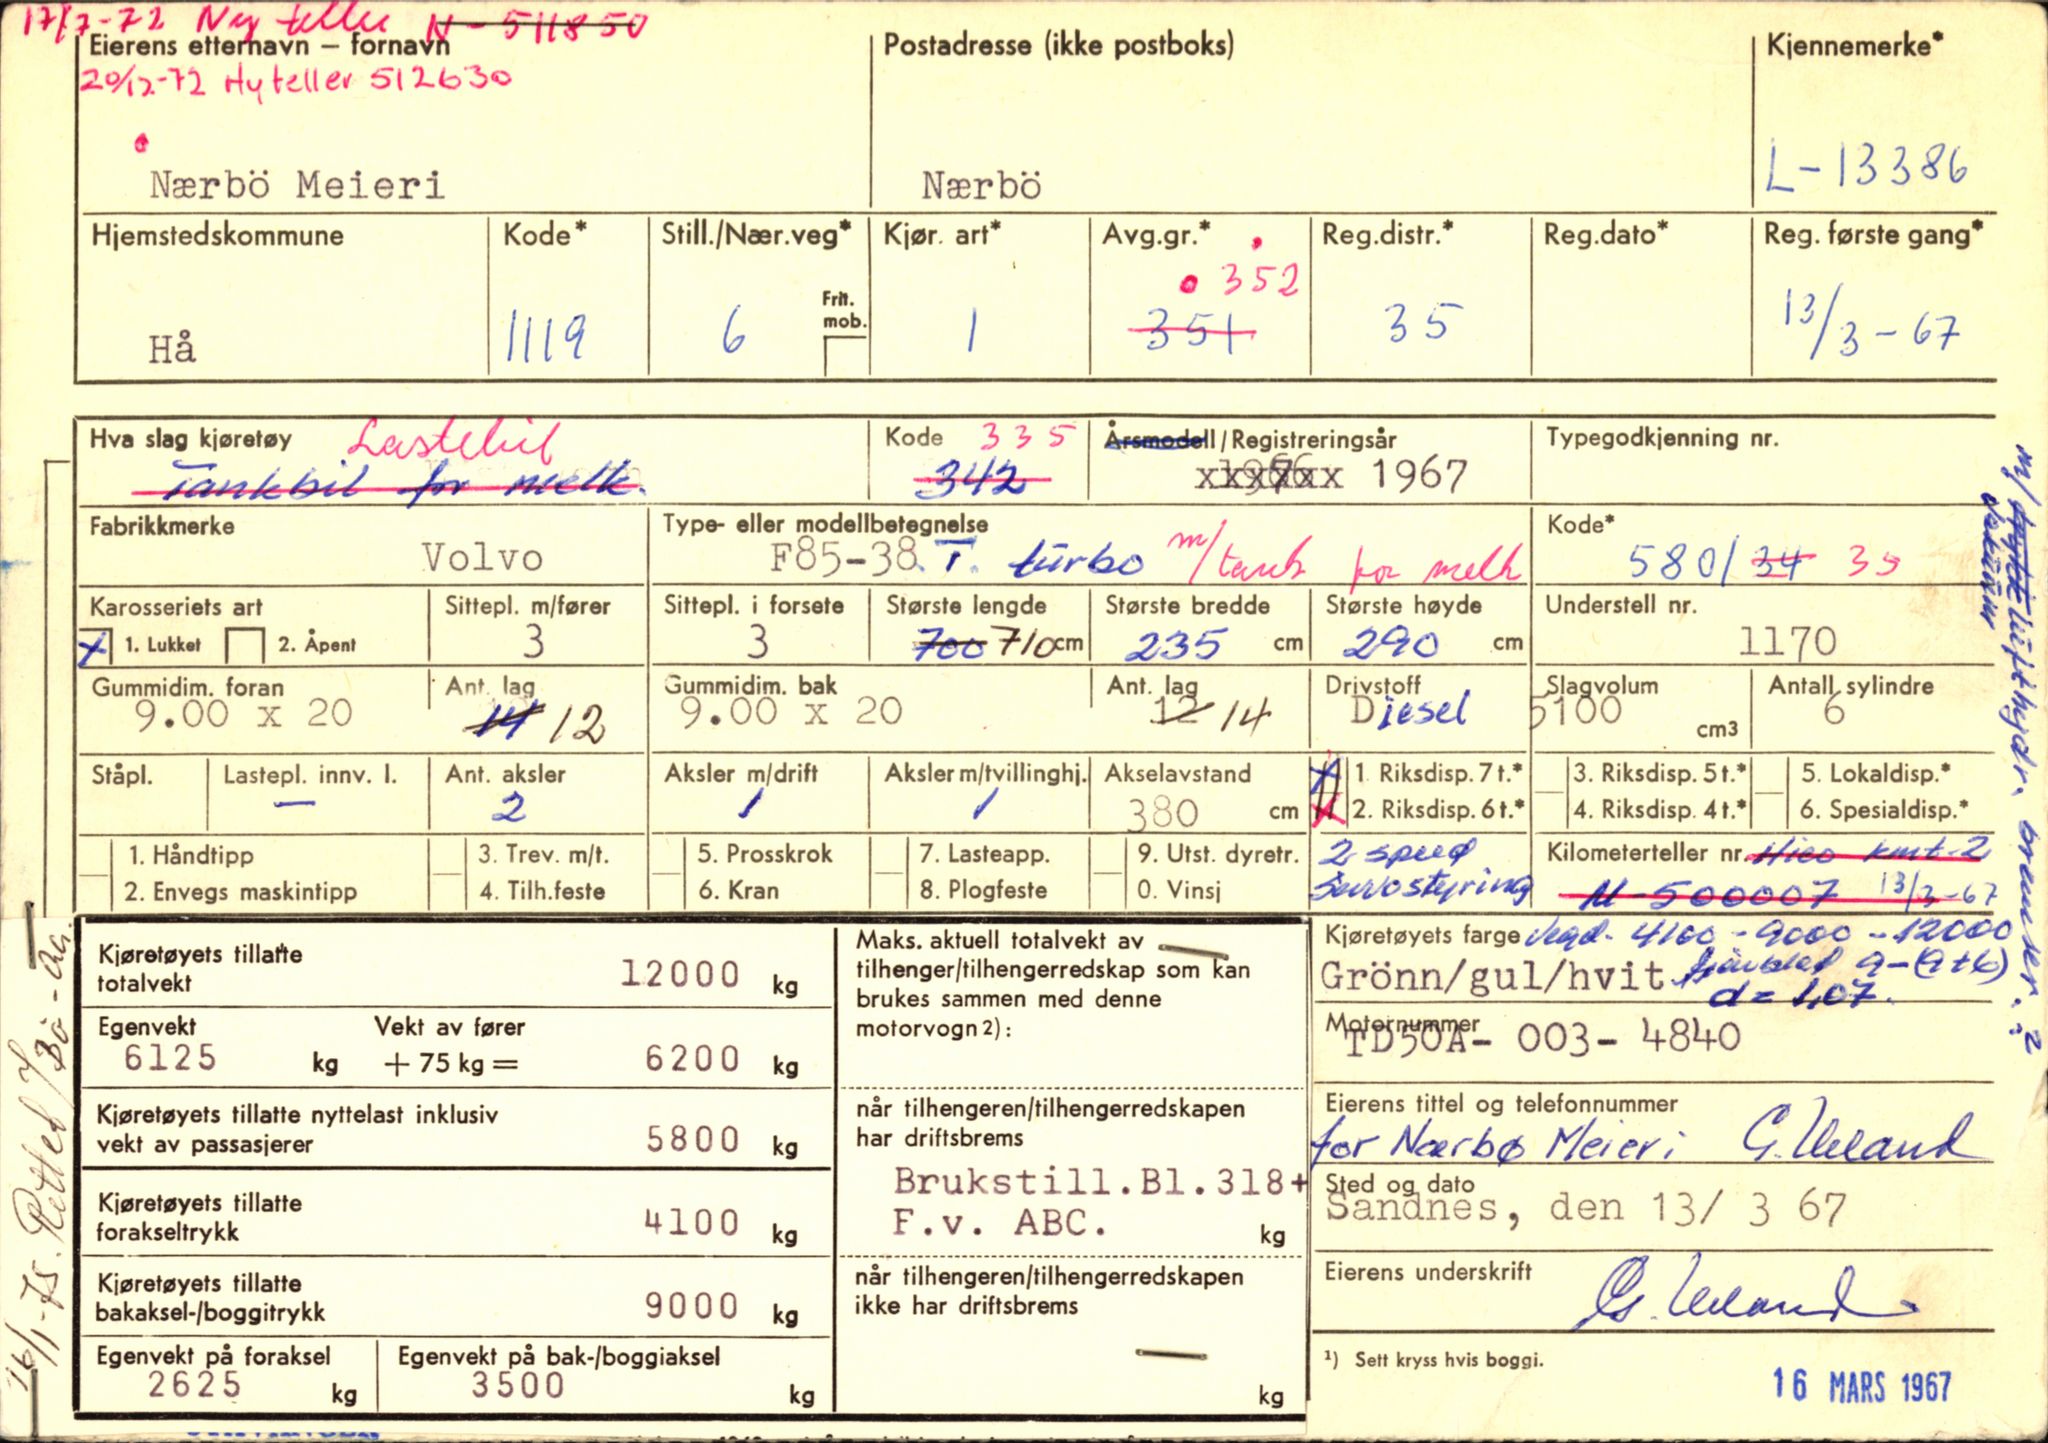 17/7-72 Ny teller N-511850
Eierens etternavn – fornavn
Postadresse (ikke postboks)
Kjennemerke*
20/12-72 Ny teller 512630
Nærbö Meieri
Nærbö
L-13386
Hjemstedskommune
Kode*
Still./Nær.veg*
Kjør. art*
Avg.gr.*
Reg.distr.*
Reg.dato*
Reg. første gang*
352
Frit.
mob.
Hå
1119
6
1
351
35
13/3-67
Hva slag kjøretøy Lastebil
Kode 335
Årsmodell/Registreringsår
Typegodkjenning nr.
Tankbil for melk.
342
1967
Fabrikkmerke
Type- eller modellbetegnelse
Kode*
Volvo
F85-38.T. turbo m/tank for melk
580/34 35
Karosseriets art
Sittepl. m/fører
Sittepl. i forsete
Største lengde
Største bredde
Største høyde
Understell nr.
x 1. Lukket 2. Åpent
3
3
700 710 cm
235 cm
290 cm
1170
Gummidim. foran
Ant. lag
Gummidim. bak
Ant. lag
Drivstoff
Slagvolum
Antall sylindre
9.00 x 20
14 12
9.00 x 20
12 14
Diesel
5100 cm3
6
Ståpl.
Lastepl. innv. l.
Ant. aksler
Aksler m/drift
Aksler m/tvillinghj.
Akselavstand
1. Riksdisp. 7 t.*
3. Riksdisp. 5 t.*
5. Lokaldisp.*
–
2
1
1
380 cm
2. Riksdisp. 6 t.*
4. Riksdisp. 4 t.*
6. Spesialdisp.*
1. Håndtipp
3. Trev. m/t.
5. Prosskrok
7. Lasteapp.
9. Utst. dyretr.
2 speed
Kilometerteller nr. Hico kmt-2
2. Envegs maskintipp
4. Tilh.feste
6. Kran
8. Plogfeste
0. Vinsj
Servostyring
N-500007 13/3-67
Kjøretøyets tillatte
totalvekt
12000 kg
Egenvekt
6125 kg
Vekt av fører
+ 75 kg =
6200 kg
Kjøretøyets tillatte nyttelast inklusiv
vekt av passasjerer
5800 kg
Kjøretøyets tillatte
forakseltrykk
4100 kg
Kjøretøyets tillatte
bakaksel-/boggitrykk
9000 kg
Egenvekt på foraksel
2625 kg
Egenvekt på bak-/boggiaksel
3500 kg
Maks. aktuell totalvekt av
tilhenger/tilhengerredskap som kan
brukes sammen med denne
motorvogn 2):
når tilhengeren/tilhengerredskapen
har driftsbrems
Brukstill.Bl.318+
F.v. ABC.
kg
når tilhengeren/tilhengerredskapen
ikke har driftsbrems
kg
Kjøretøyets farge Vegd. 4100 - 9000 - 12000
Grönn/gul/hvit 9-(9+6)
d = 1,07.
Motornummer
TD50A- 003- 4840
Eierens tittel og telefonnummer
for Nærbø Meieri
Sted og dato
Sandnes, den 13/ 3 67
Eierens underskrift
1) Sett kryss hvis boggi.
16 MARS 1967
16/1-75. Rettet
m/ lufthydr. bremser.